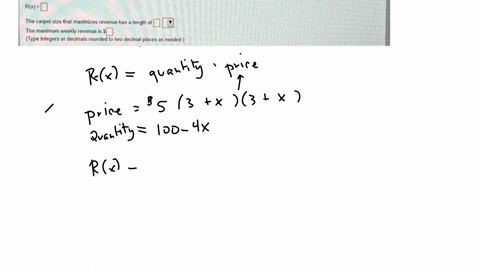 R(x) =
The carpet size that maximizes revenue has a length of
The maximum weekly revenue is $
(Type integers or decimals rounded to two decimal places as needed.)
R(x) = quantity · price
price = $5 (3 + x)(3 + x)
Quantity = 100 - 4x
R(x) -